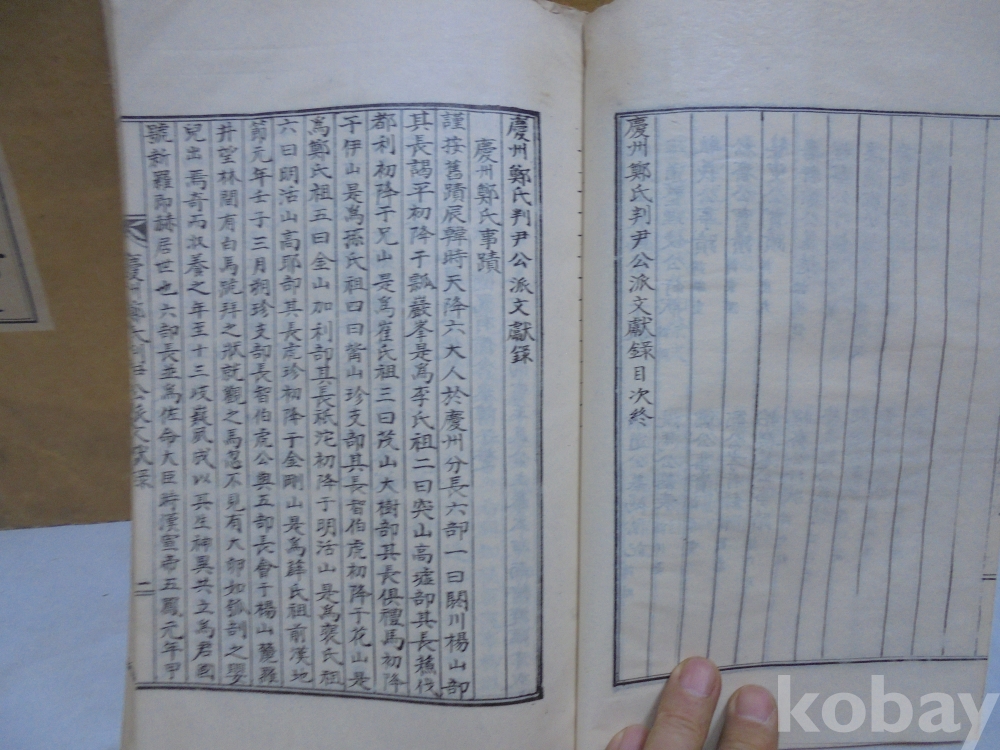 慶州鄭氏判尹公派文獻録目次終
慶州鄭氏判尹公派文獻録
慶州鄭氏事蹟
謹按舊蹟辰韓時天降六大人於慶州分長六部一曰閼川楊山部
其長謁平初降于瓢巖峯是爲李氏祖二曰突山高墟部其長蘇伐
都利初降于兄山是爲崔氏祖三曰茂山大樹部其長俱禮馬初降
于伊山是爲孫氏祖四曰觜山珍支部其長智伯虎初降于花山是
爲鄭氏祖五曰金山加利部其長祗沱初降于明活山是爲裵氏祖
六曰明活山高耶部其長虎珍初降于金剛山是爲薛氏祖前漢地
節元年壬子三月朔珍支部長智伯虎公與五部長會于楊山麓羅
井望林間有白馬跪拜之狀就觀之馬忽不見有大卵如瓠剖之嬰
兒出焉奇而收養之年至十三歧嶷夙成以其生神異共立爲君國
號新羅即赫居世也六部長並爲佐命大臣時漢宣帝五鳳元年甲
慶州鄭氏判尹公派文獻録
二
kobay